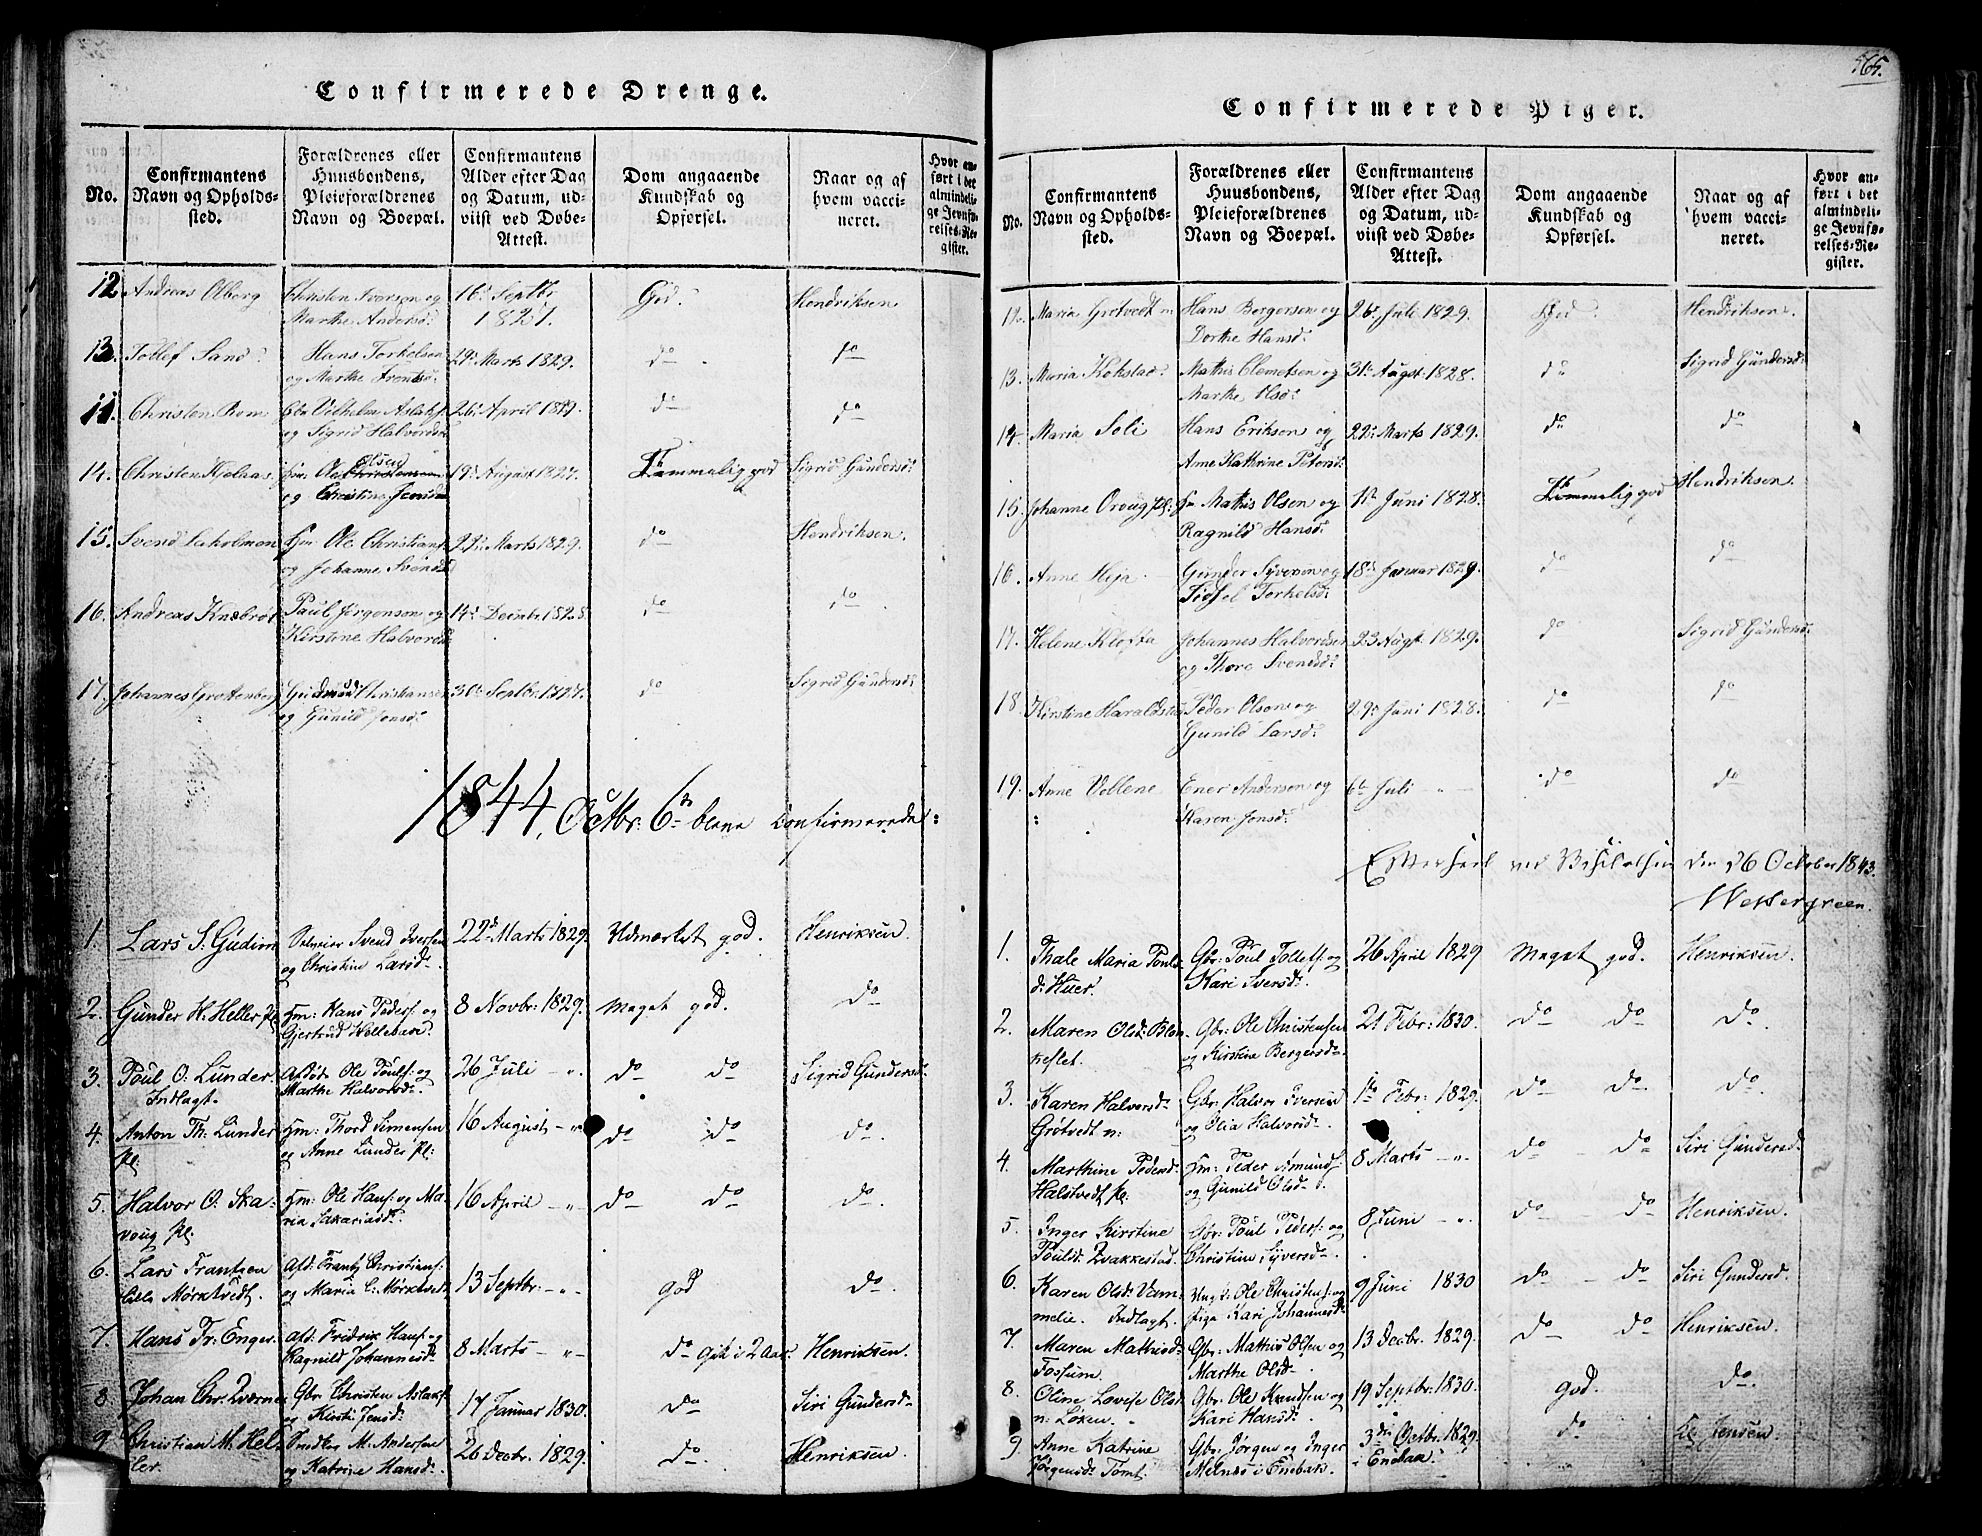 565.
Confirmerede Drenge.
No.
Confirmantens Navn og Opholdssted.
Forældrenes eller Huusbondens, Pleieforældrenes Navn og Boepæl.
Confirmantens Alder efter Dag og Datum, udviist ved Døbe-Attest.
Dom angaaende Kundskab og Opførsel.
Naar og af hvem vaccineret.
Hvor anført i det almindelige Jevnførelses-Register.
12 Andreas Olberg Christen Iversen og 16de Septbr God. Hendriksen
Marthe Andersd: 1827.
13. Tollef Sand Hans Torkelsen 29de Marts 1829. do do
og Marthe
11. Christen Rom Vilhelm Aslaks: 26de April 1829. do do
og Sigrid Halvorsd:
14. Christen Hm: Ole Olsen 19de August 1827. Temmelig god Sigrid Gundersd:
og Christine Jensd:
15. Svend Hm: Ole Christians: Marts 1829. do Hendriksen.
og Johanne Svensd:
16. Andreas Knæbrøt Paul Jørgensen og 14de Decembr. 1828. do do
Kirstine Halvorsd:
17. Johannes Grottenberg Christiansen 30te Septbr. 1827. do Sigrid Gundersd:
og Gunild Jensd:
1844, Octbr: 6te bleve Confirmerede:
1. Lars S. Gudim Svend Iversen 22de Marts 1829. Udmærket god. Henriksen.
og Christine Larsd:
2. Gunder H. Heller pl. Hm: Hans Peders: og 8 Novbr: 1829. Meget god. do
Gjertrud
3. Poul O: Lunder Afdøde Ole Pouls: og 26 Juli - " do do Sigrid Gundersd:
Indlagt. Marthe Halvorsd:
4. Anton Th: Lunder Hm: Thord Simensen 16 August - " do do do.
pl: og Anne Lunder pl:
5. Halvor O. Ska- Hm: Ole Hans: og Ma- 16 April - " do do do.
voug pl. ria Sakariasd:
6. Lars Frantsen Afd: Frantz Christians: 13 Septbr. - " god do.
Mørktvedt. og Maria C: Mørktvedt
7. Hans Fr: Enger. Afd: Fridrik Hans: og 8 Marts - " do gik i 2 Aar. Henriksen.
Ragnild Johannesd:
8. Johan Chr. Gbr: Christen Aslaks: 17 Januar 1830. do Siri Gundersd:
og Kirsti Jensd:
9. Christian M. Hel- M: Andersen 26 Decbr. 1829. do. Henriksen.
ler. og Katrine Hansd:
Confirmerede Piger.
No.
Confirmantens Navn og Opholdssted.
Forældrenes eller Huusbondens, Pleieforældrenes Navn og Boepæl.
Confirmantens Alder efter Dag og Datum, udviist ved Døbe-Attest.
Dom angaaende Kundskab og Opførsel.
Naar og af hvem vaccineret.
Hvor anført i det almindelige Jevnførelses-Register.
12. Maria Grøtvedt n: Hans Bergersen og 26de Juli 1829. God Hendriksen.
Dorthe Hansd:
13. Maria Kokstad Mathis Clemetsen og 31te August 1828. do Sigrid Gundersd:
Marthe Olsd:
14. Maria Soli Hans Eriksen og 22de Marts 1829. do do
Anne Kathrine Petersd:
15. Johanne Oroug pl: Hm Mathis Olsen og 1ste Juni 1828. Temmelig god Hendriksen.
Ragnild Hansd:
16. Anne Heja Gunder Syversen og 18de Januar 1829. do do
Sidsel Torkelsd:
17. Helene Kløfta Johannes Halvordsen 23 Augst 1829. do Sigrid Gundersd:
og Thore Svendsd:
18. Kirstine Haraldstad Peder Olsen og 29de Juni 1828. do do
Gunild Larsd:
19. Anne Veblene Ener Andersen og 6te Juli " do do
Karen Jensd:
Efterseet ved Visitatsen den 26 October 1843.
Westergreen.
1. Thale Maria Pouls- Gbr: Poul Tollefs: og 26 April 1829 Meget god. Henriksen.
d: Huer. Kari Iversd:
2. Maren Olsd: Blan- Gbr: Ole Christensen 21 Febr: 1830. do do do.
keflet. og Kirstine Bergersd:
3. Karen Halvorsd: Gbr: Halvor Iversen 1ste Febr: 1829. do do. do.
Grøtvedt n: og Olia Halvorsd:
4. Marthine Pedersd: Hm: Peder Amunds: 8 Marts - " do - do Siri Gundersd:
Halstvedt pl. og Gunild Olsd:
5. Inger Kirstine Gbr: Poul Peders: og 8 Juni - " do - do Henriksen.
Poulsd: Qvakkestad. Christine Syversd:
6. Karen Olsd: Vam- Ole Christens: og 9 Juni 1830 do - do Siri Gundersd:
melie. Indlagt. Pige Kari Johannesd:
7. Maren Mathisd: Gbr: Mathis Olsen og 13 Decbr. 1829. do do Henriksen.
Fossum. Marthe Olsd:
8. Oline Lovise Olsd: Gbr: Ole Knudsen og 19 Septbr: 1830. god. do.
n: Løken. Kari Hansd:
9 Anne Katrine Gbr: Jørgen og Inger 3die Octbr. 1829. do Jensen.
Jørgensd: Tomt. i Enebak. i Enebak.